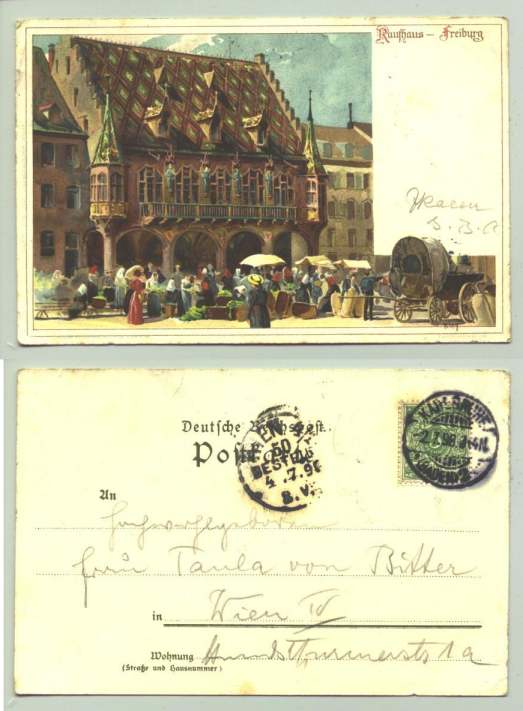 Kaufhaus – Freiburg
S. B. C
Deutsche Reichspost.
Postkarte
KARLSRUHE
-2.7.98.
BADEN
WIEN
50
BESTELLT
4.7.98
8.V.
An
Hochwohlgeboren
Frau Paula von Bitter
in Wien IV
Wohnung Hundsthurmerstr 1a
(Straße und Hausnummer)